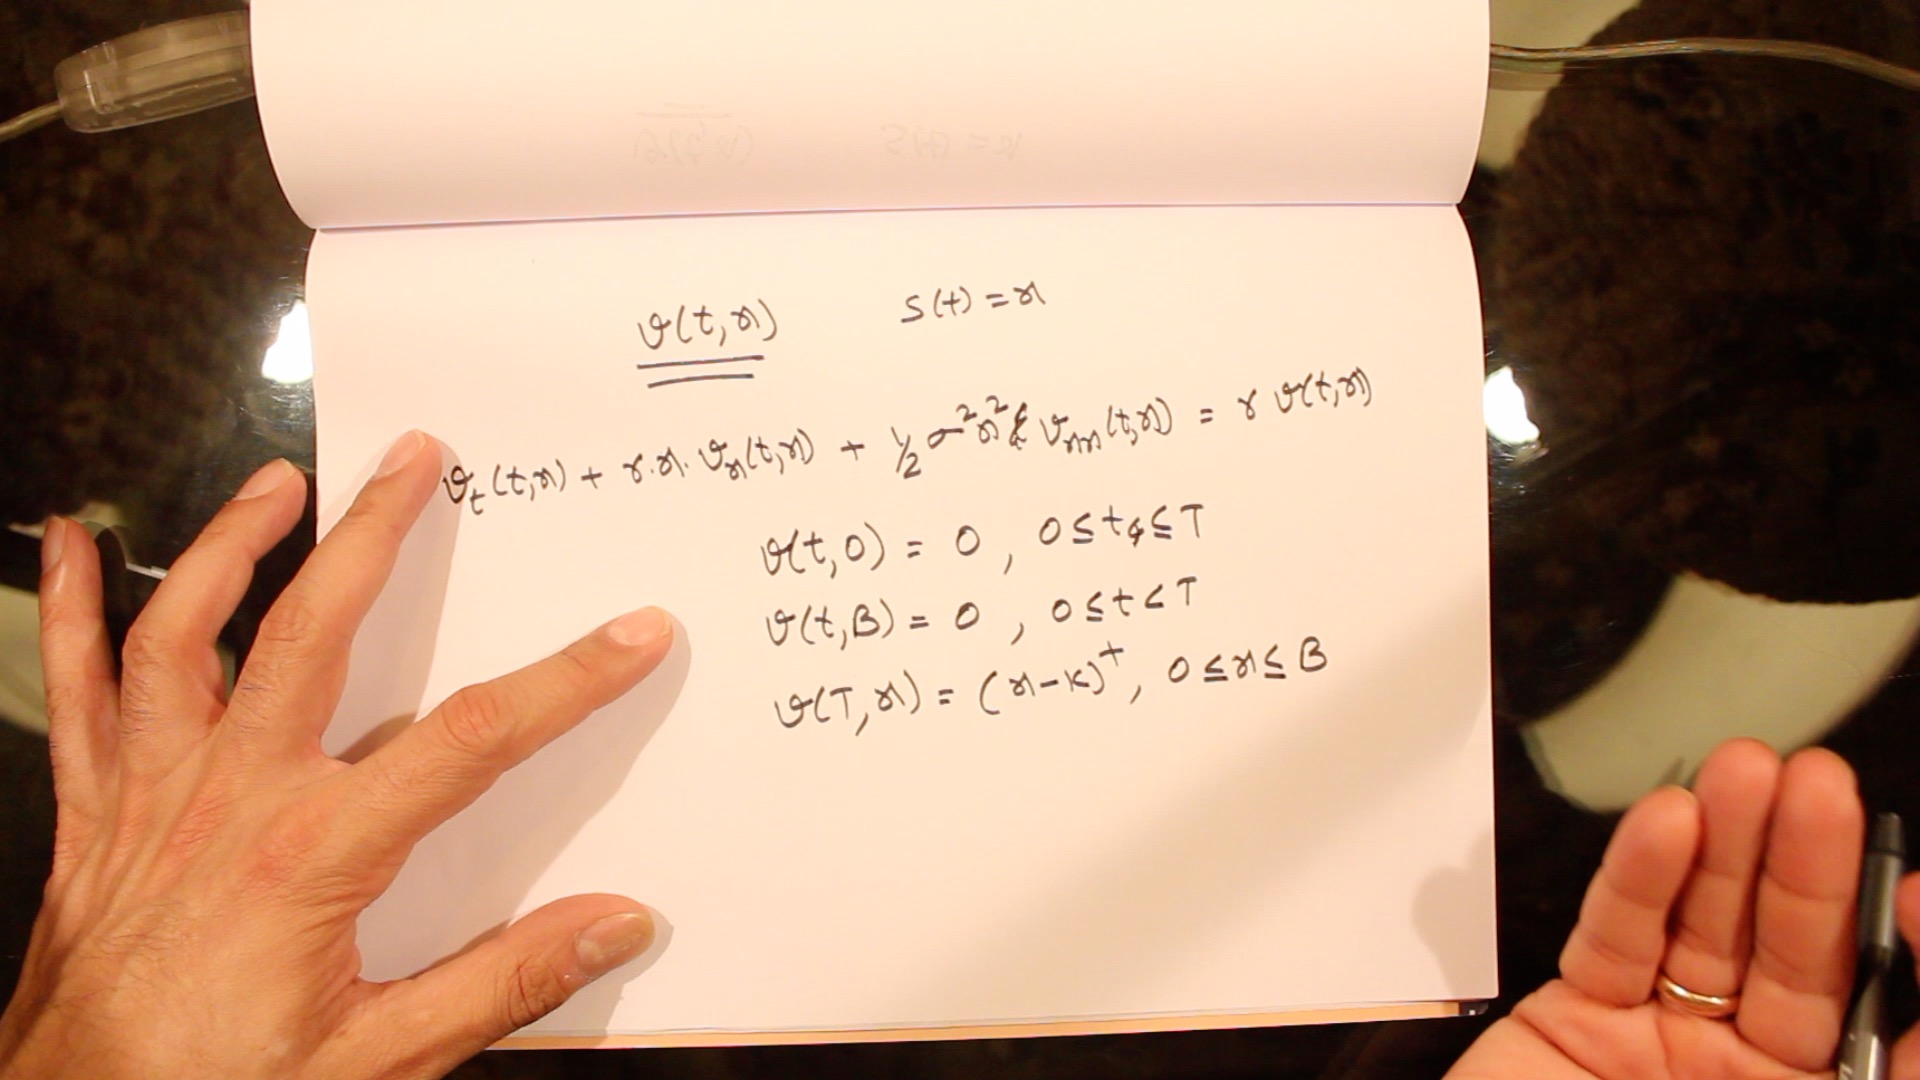 v(t,x) S(t) = x
v_t(t,x) + r.x. v_x(t,x) + 1/2 σ²x² v_xx(t,x) = r v(t,x)
v(t,0) = 0 , 0 ≤ t ≤ T
v(t,B) = 0 , 0 ≤ t < T
v(T,x) = (x-K)⁺, 0 ≤ x ≤ B